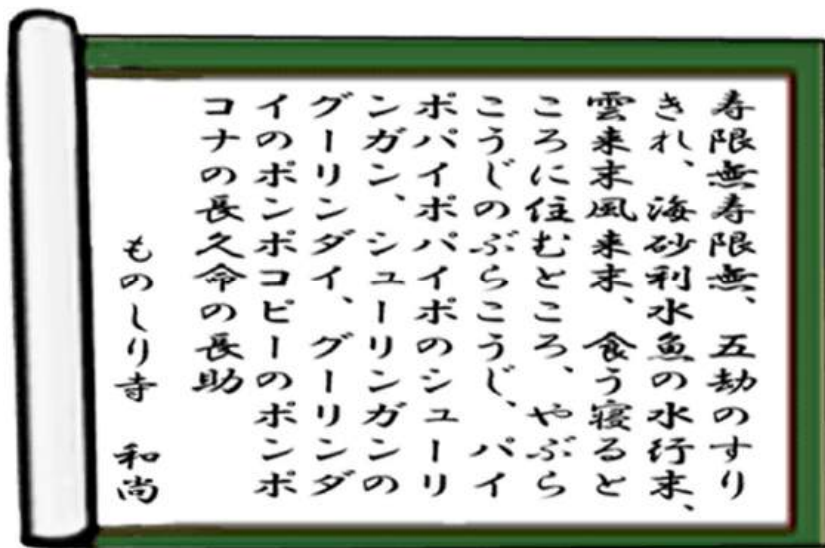 寿限無寿限無、五劫のすり
きれ、海砂利水魚の水行末、
雲来末風来末、食う寝ると
ころに住むところ、やぶら
こうじのぶらこうじ、パイ
ポパイポパイポのシューリ
ンガン、シューリンガンの
グーリンダイ、グーリンダ
イのポンポコピーのポンポ
コナの長久命の長助
ものしり寺 和尚